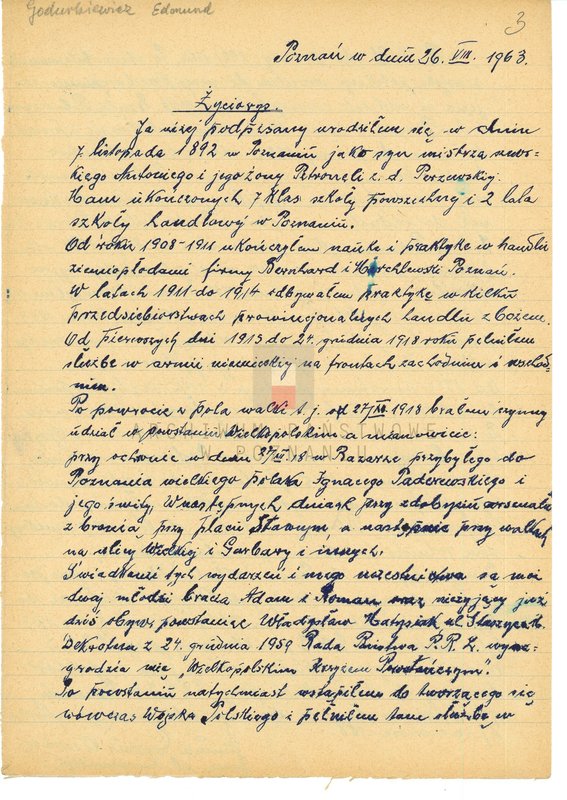 Godurkiewicz Edmund
3
Poznań w dniu 26. VIII. 1963.
Życiorys.
Ja niżej podpisany urodziłem się w dniu
7. listopada 1892 w Poznaniu jako syn mistrza szew-
kiego Antoniego i jego żony Petroneli z. d. Perzewskiej.
Mam ukończonych 7 klas szkoły powszechnej i 2 lata
szkoły handlowej w Poznaniu.
Od roku 1908-1911 ukończyłem naukę i praktykę w handlu
ziemiopłodami firmy Bernhard i Marchlewski Poznań.
W latach 1911 do 1914 odbywałem praktykę w kilku
przedsiębiorstwach prowincjonalnych handlu zbożem.
Od pierwszych dni 1915 do 24. grudnia 1918 roku pełniłem
służbę w armii niemieckiej na frontach zachodnim i wschod-
nim.
Po powrocie z pola walki t. j. od 27/XII. 1918 brałem czynny
udział w powstaniu Wielkopolskim a mianowicie:
przy ochronie w dniu 27/XII 18 w Bazarze przybyłego do
Poznania wielkiego polaka Ignacego Paderewskiego i
jego świty, W następnych dniach przy zdobyciu arsenału
z bronią przy placu Sławnym a następnie przy walkach
na ulicy Wielkiej i Garbary i innych.
Świadkami tych wydarzeń i mego uczestnictwa są moi
dwaj młodsi bracia Adam i Roman oraz nieżyjący już
dziś obyw. powstaniec Władysław Matysiak ul.
Dekretem z 24. grudnia 1959 Rada Państwa P.R.L. wyna-
grodziła mię "Wielkopolskim Krzyżem Powstańczym".
Po powstaniu natychmiast wstąpiłem do tworzącego się
wówczas Wojska Polskiego i pełniłem tam służbę w
ARCHIWUM PAŃSTWOWE
W POZNANIU